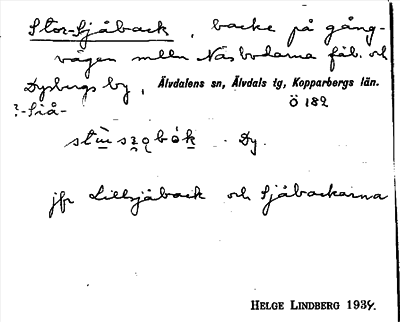 Stor-Sjåback, backe på gång-
vägen mlln Näsbodarna fäb. och
Dysbergs by, Älvdalens sn, Älvdals tg, Kopparbergs län.
Ö 182
?-Siå-
Dy.
jfr Lillsjåback och Sjåbackarna
HELGE LINDBERG 1937.